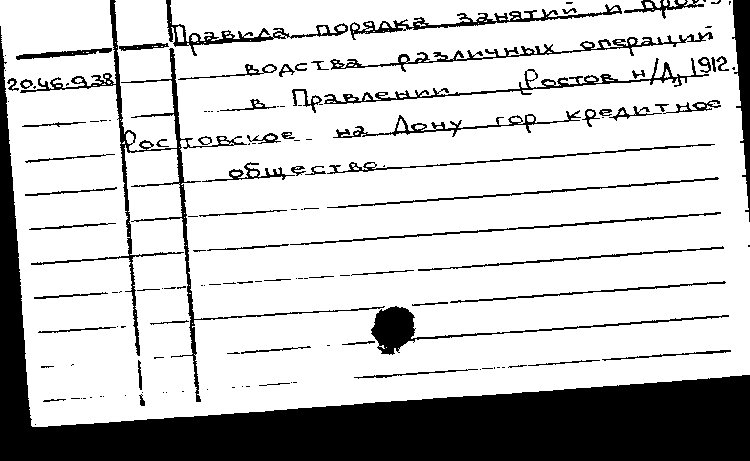 Правила порядка занятий и произ-
20.46.938 водства различных операций
в Правлении. [Ростов н/Д], 1912.
Ростовское на Дону гор кредитное
общество.